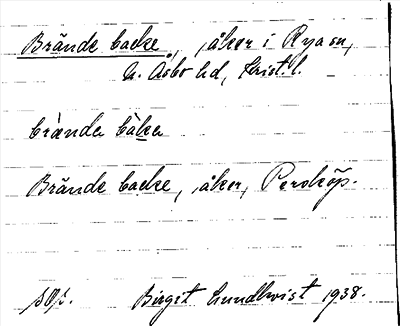 Brände backe, åker i Rya sn,
N. Åsbo hd, Krist. l.
brànda bàka
Brände backe, åker, Perstorp.
Birgit Lundkvist 1938.